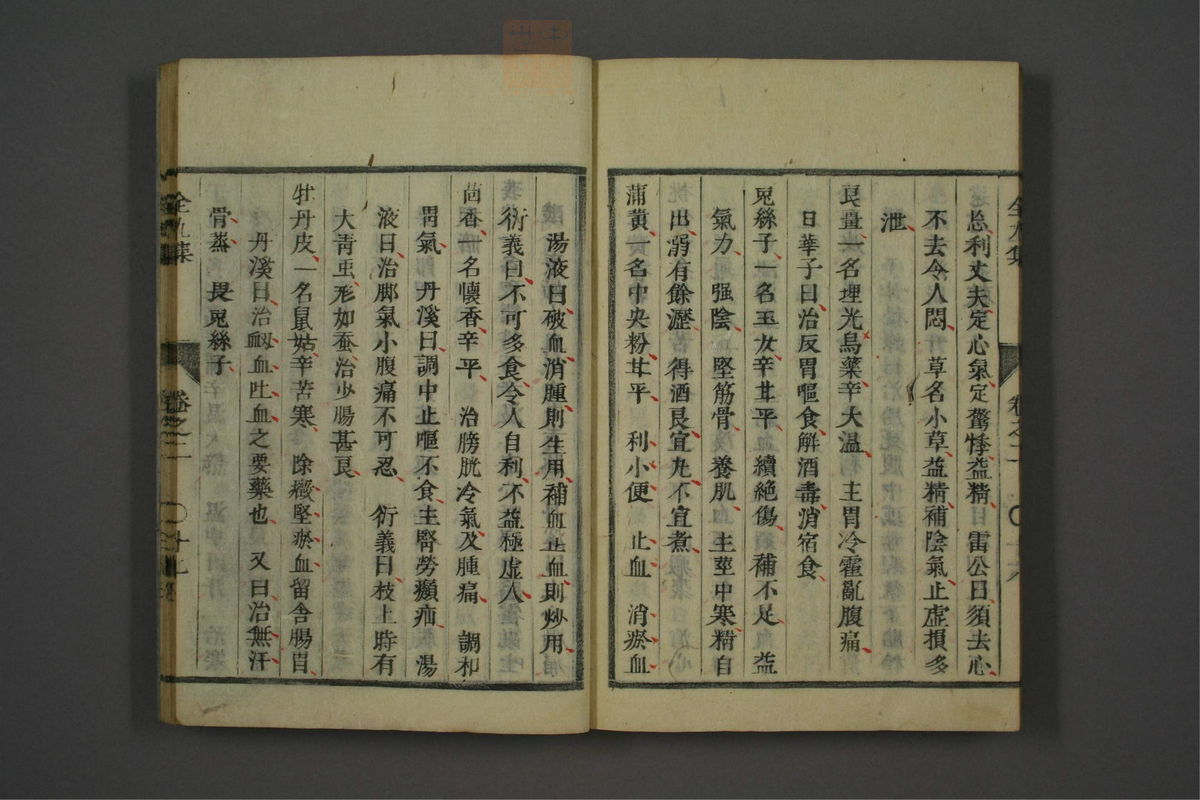 忘利丈夫定心氣定驚悸益精　雷公曰須去心
不去令人悶　草名小草益精補陰氣止虛損多
泄
良薑一名埋光烏藥辛大温　主胃冷霍亂腹痛
日華子曰治反胃嘔食解酒毒消宿食
兎絲子一名玉女辛甘平　續絶傷　補不足　益
氣力　强陰　堅筋骨　養肌　主莖中寒精自
出溺有餘瀝　得酒良宜丸不宜煮
蒲黄一名中央粉甘平　利小便　止血　消瘀血
湯液曰破血消腫則生用補血止血則炒用
衍義曰不可多食令人自利不益極虚人
茴香一名懷香辛平　治膀胱冷氣及腫痛　調和
胃氣　丹溪曰調中止嘔不食主腎勞㿗疝　湯
液曰治脚氣小腹痛不可忍　衍義曰枝上時有
大青虫形如蚕治少腸甚良
牡丹皮一名鼠姑辛苦寒　除癥堅瘀血留舎腸胃
丹溪曰治衂血吐血之要藥也　又曰治無汗
骨蒸　畏兎絲子
全九集　卷之二　〇十七